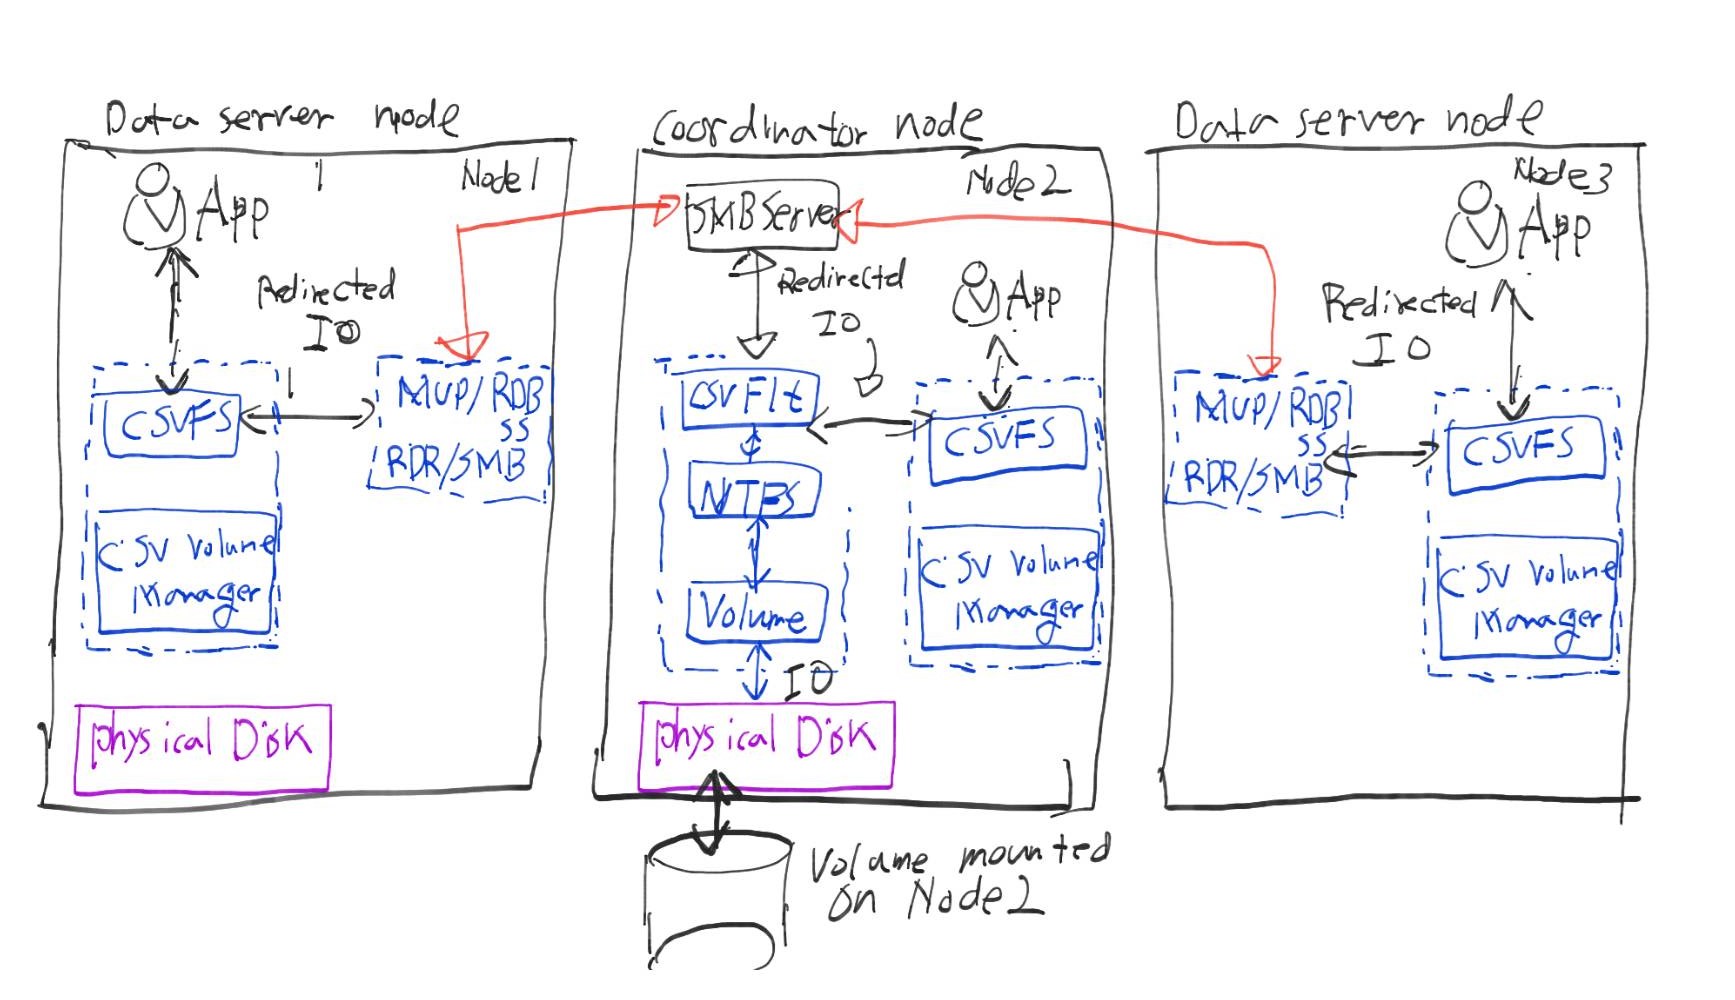 Data server node
Node1
App
Redirected
IO
CSVFS
MUP/RDB
SS
RDR/SMB
CSV Volume
Manager
physical Disk
Coordinator node
Node2
SMBServer
Redirected
IO
App
CSVFlt
CSVFS
NTFS
CSV Volume
Manager
Volume
IO
physical Disk
Volume mounted
on Node2
Data server node
Node3
App
Redirected
IO
MUP/RDB
SS
RDR/SMB
CSVFS
CSV Volume
Manager